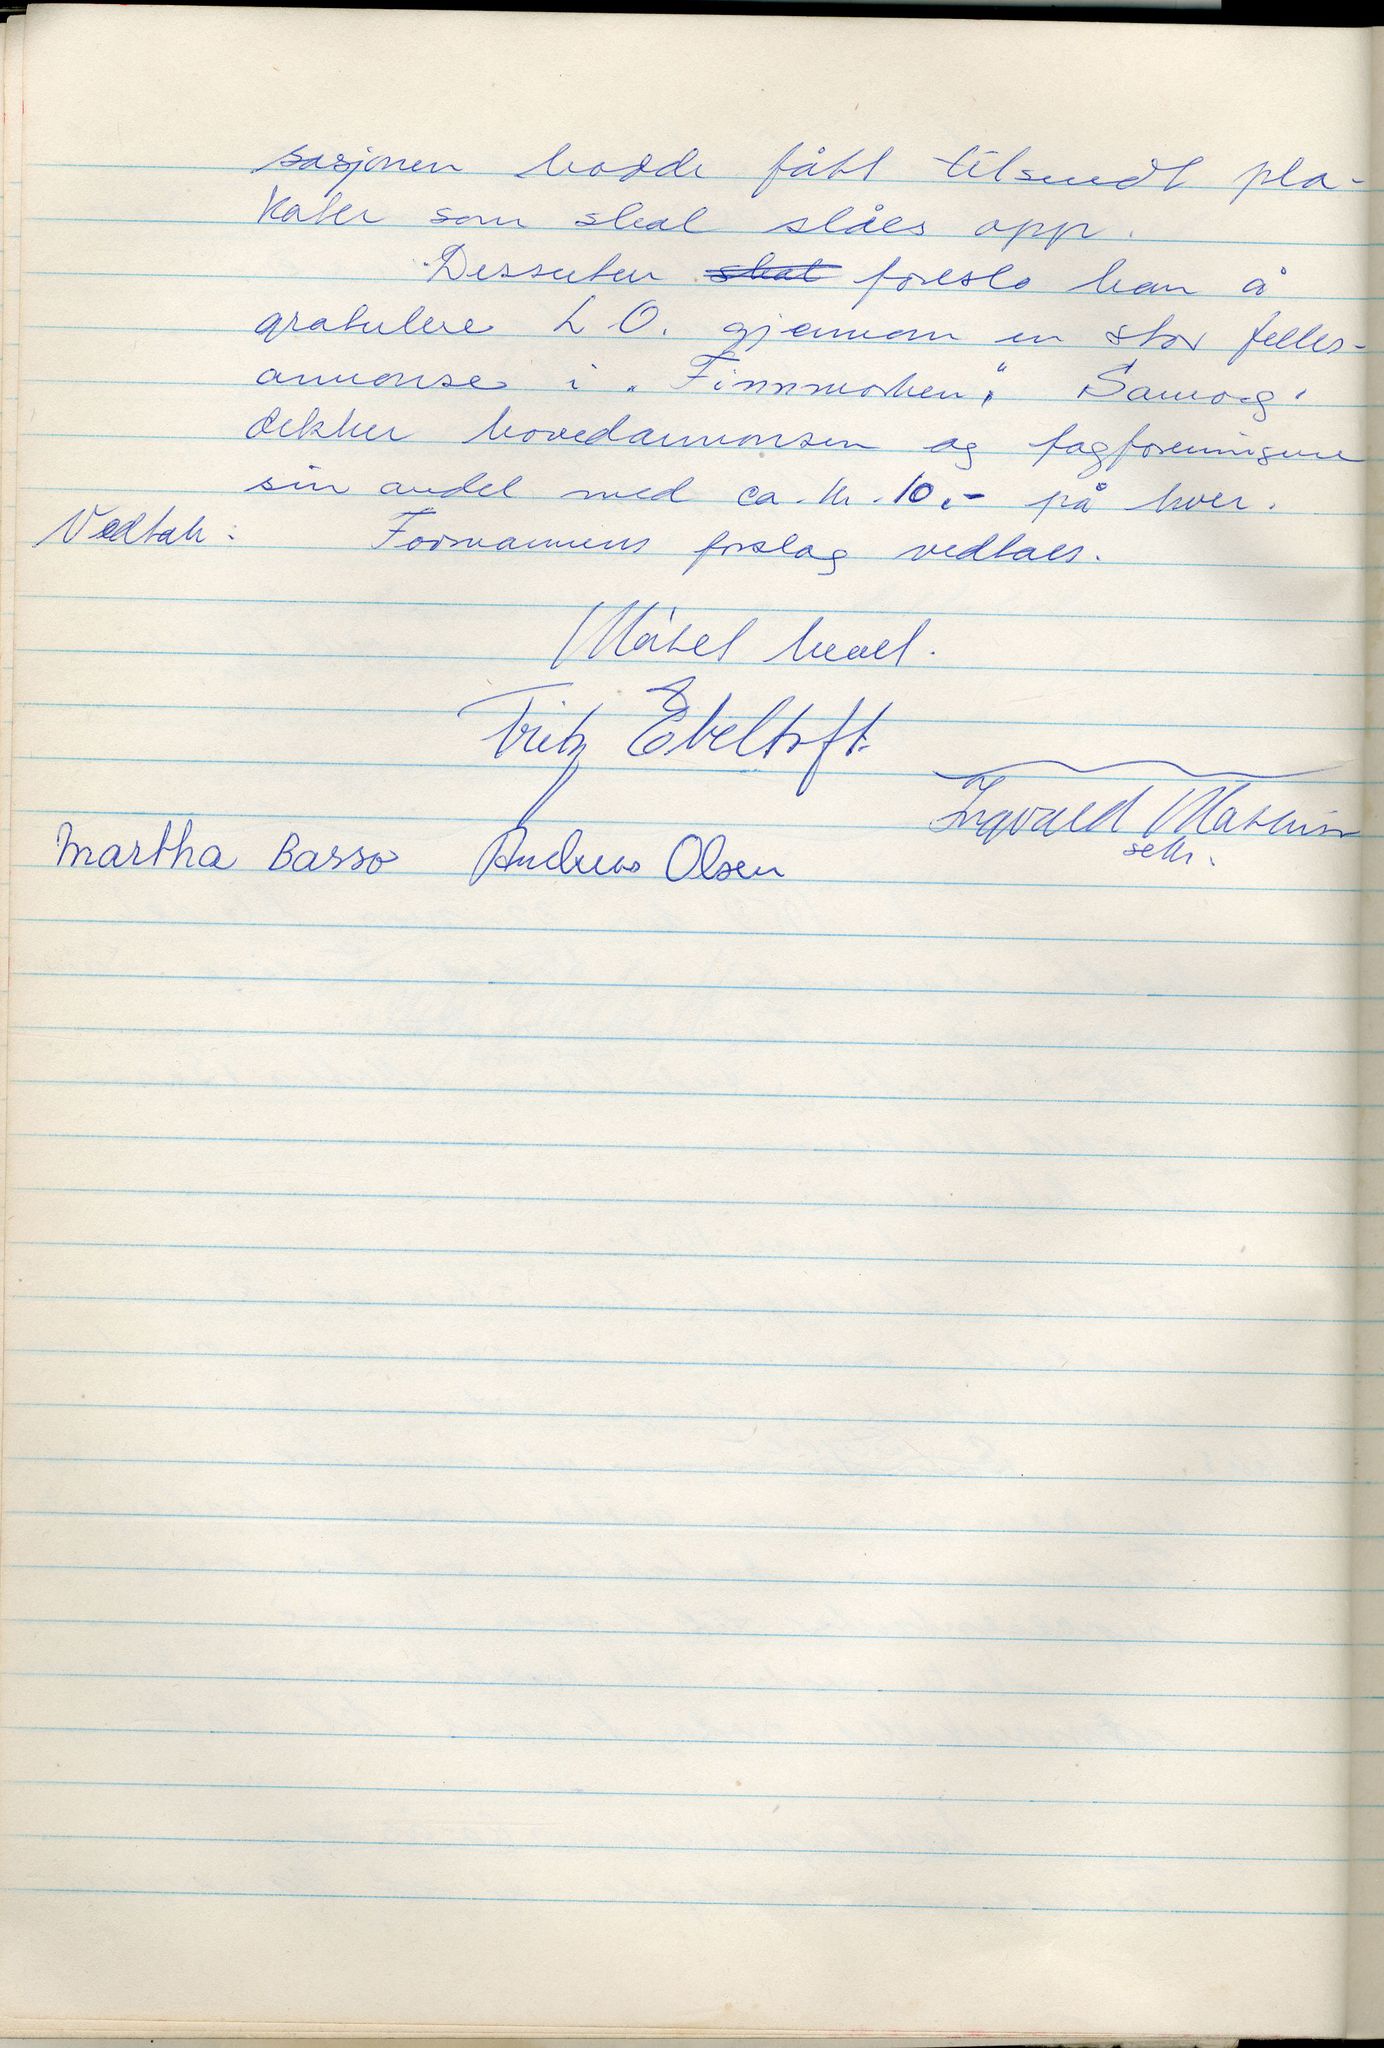 sasjonen hadde fått tilsendt pla-
kater som skal slåes opp.
Dessuten skal foreslo han å
gratulere L O. gjennom en stor felles-
annonse i "Finnmarken". Samorg.
dekker hovedannonsen og fagforeningene
sin andel med ca. kr. 10,- på hver.
Vedtak: Formannens forslag vedtaes.
Møtet hevet.
Fritz Ebeltoft
Ingvald Mathisen
sekr.
Martha Basso Andreas Olsen